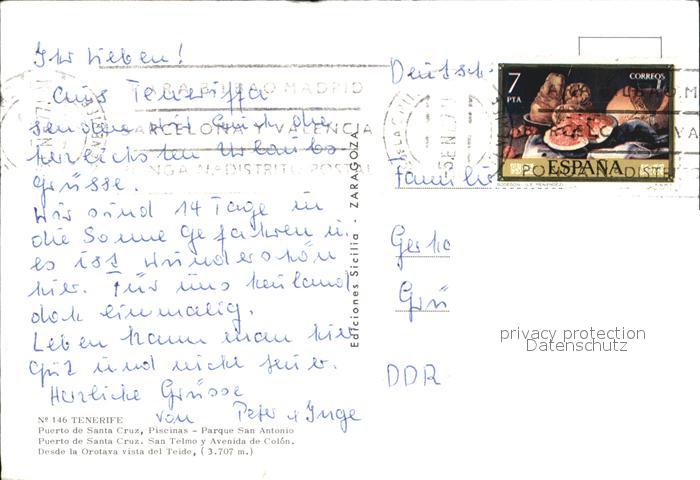 Ihr Lieben!
Aus Teneriffa
senden wir Euch die
herzlichsten Urlaubs-
grüsse.
Wir sind 14 Tage in
die Sonne gefahren u.
es ist wunderschön
hier. Für uns
doch einmalig.
Leben kann man hier
gut und nicht teuer.
Herzliche Grüsse
von Peter u Inge
Nº 146 TENERIFE
Puerto de Santa Cruz, Piscinas - Parque San Antonio
Puerto de Santa Cruz. San Telmo y Avenida de Colón.
Desde la Orotava vista del Teide, (3.707 m.)
Ediciones Sicilia - ZARAGOZA
PARA BILBAO MADRID
BARCELONA Y VALENCIA
PONGA Nº DISTRITO POSTAL
Deutsch
7
PTA
CORREOS
ESPAÑA
BODEGON (L.E. MENENDEZ)
Familie
Gerha
Grü
DDR
privacy protection
Datenschutz